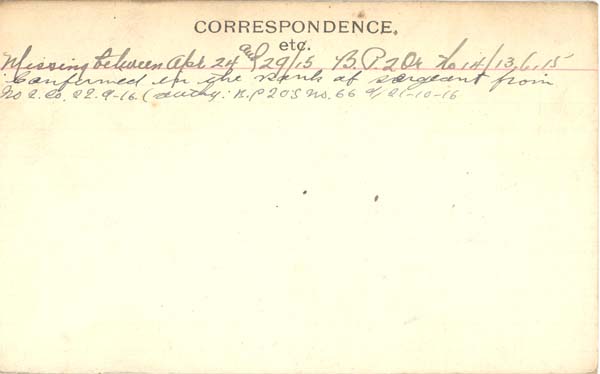 CORRESPONDENCE,
etc.
Missing between Apl 24 and 29/15 B.P. 2 Or No 14/13.6.15
Confirmed in the rank of sergeant from
No 2. Co. 22.9-16. (Authy: B.P 2 O S No. 66 of 21-10-16